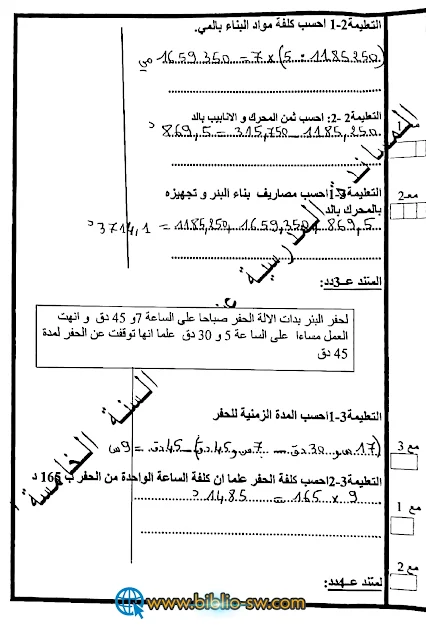 التعليمة2-1 احسب كلفة مواد البناء بالمي.
(1185250 : 5) x 7 = 1659350 مي
التعليمة2 -2: احسب ثمن المحرك و الانابيب بالد
1185,250 – 315,750 = 869,5 د
مع 1
التعليمة3-1 احسب مصاريف بناء البئر و تجهيزه
بالمحرك بالد
مع2
869,5 + 1659,350 + 1185,250 = 3714,1 د
السند عـ3ـدد:
لحفر البئر بدات الالة الحفر صباحا على الساعة 7و 45 دق و انهت
العمل مساءا على الساعة 5 و 30 دق علما انها توقفت عن الحفر لمدة
45 دق
التعليمة3-1احسب المدة الزمنية للحفر
(17س و 30 دق – 7س و 45 دق) – 45 دق = 9س
مع 3
التعليمة3-2احسب كلفة الحفر علما ان كلفة الساعة الواحدة من الحفر ب 165 د
9 x 165 = 1485 د
مع 1
مع 2
لمتند عـ4ـدد:
المساندة المدرسية
السنة الخامسة
www.biblio-sw.com